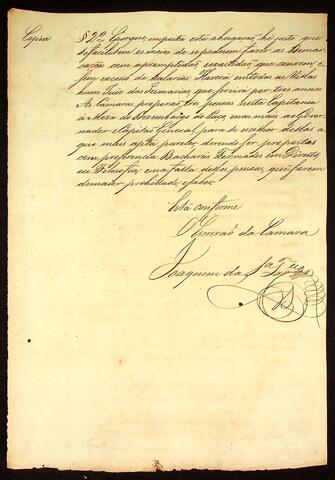 Copia
§ 22º E porque, imposta esta obrigação, hé justo que
se facilitem os meios de se poderem fazer as Demar
cações com a promptidão, exactidão que convem, e
sem excesso de Salarios. Haverá em todas as Villas
hum Juiz das Sesmarias, que servirá por tres annos
As Camaras proporão tres pessoas nesta Capitania
á Meza do Desembargo do Paço e nas mais ao Gover
nador e Capitão General para se escolher dellas a
que mais apta parecer, devendo ser propostos
com preferencia Bachareis Formados em Direito
ou Filosofia, e na falta destes pessoas, que forem
de maior probidade, e saber.
Está conforme
O Escrivão da Camara
Joaquim da Sª